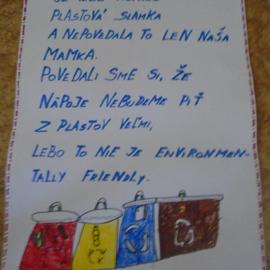 PLASTOVÁ SLAMKA
A NEPOVEDALA TO LEN NAŠA
MAMKA.
POVEDALI SME SI, ŽE
NÁPOJE NEBUDEME PIŤ
Z PLASTOV VEĽMI,
LEBO TO NIE JE ENVIRONMEN-
TALLY FRIENDLY.